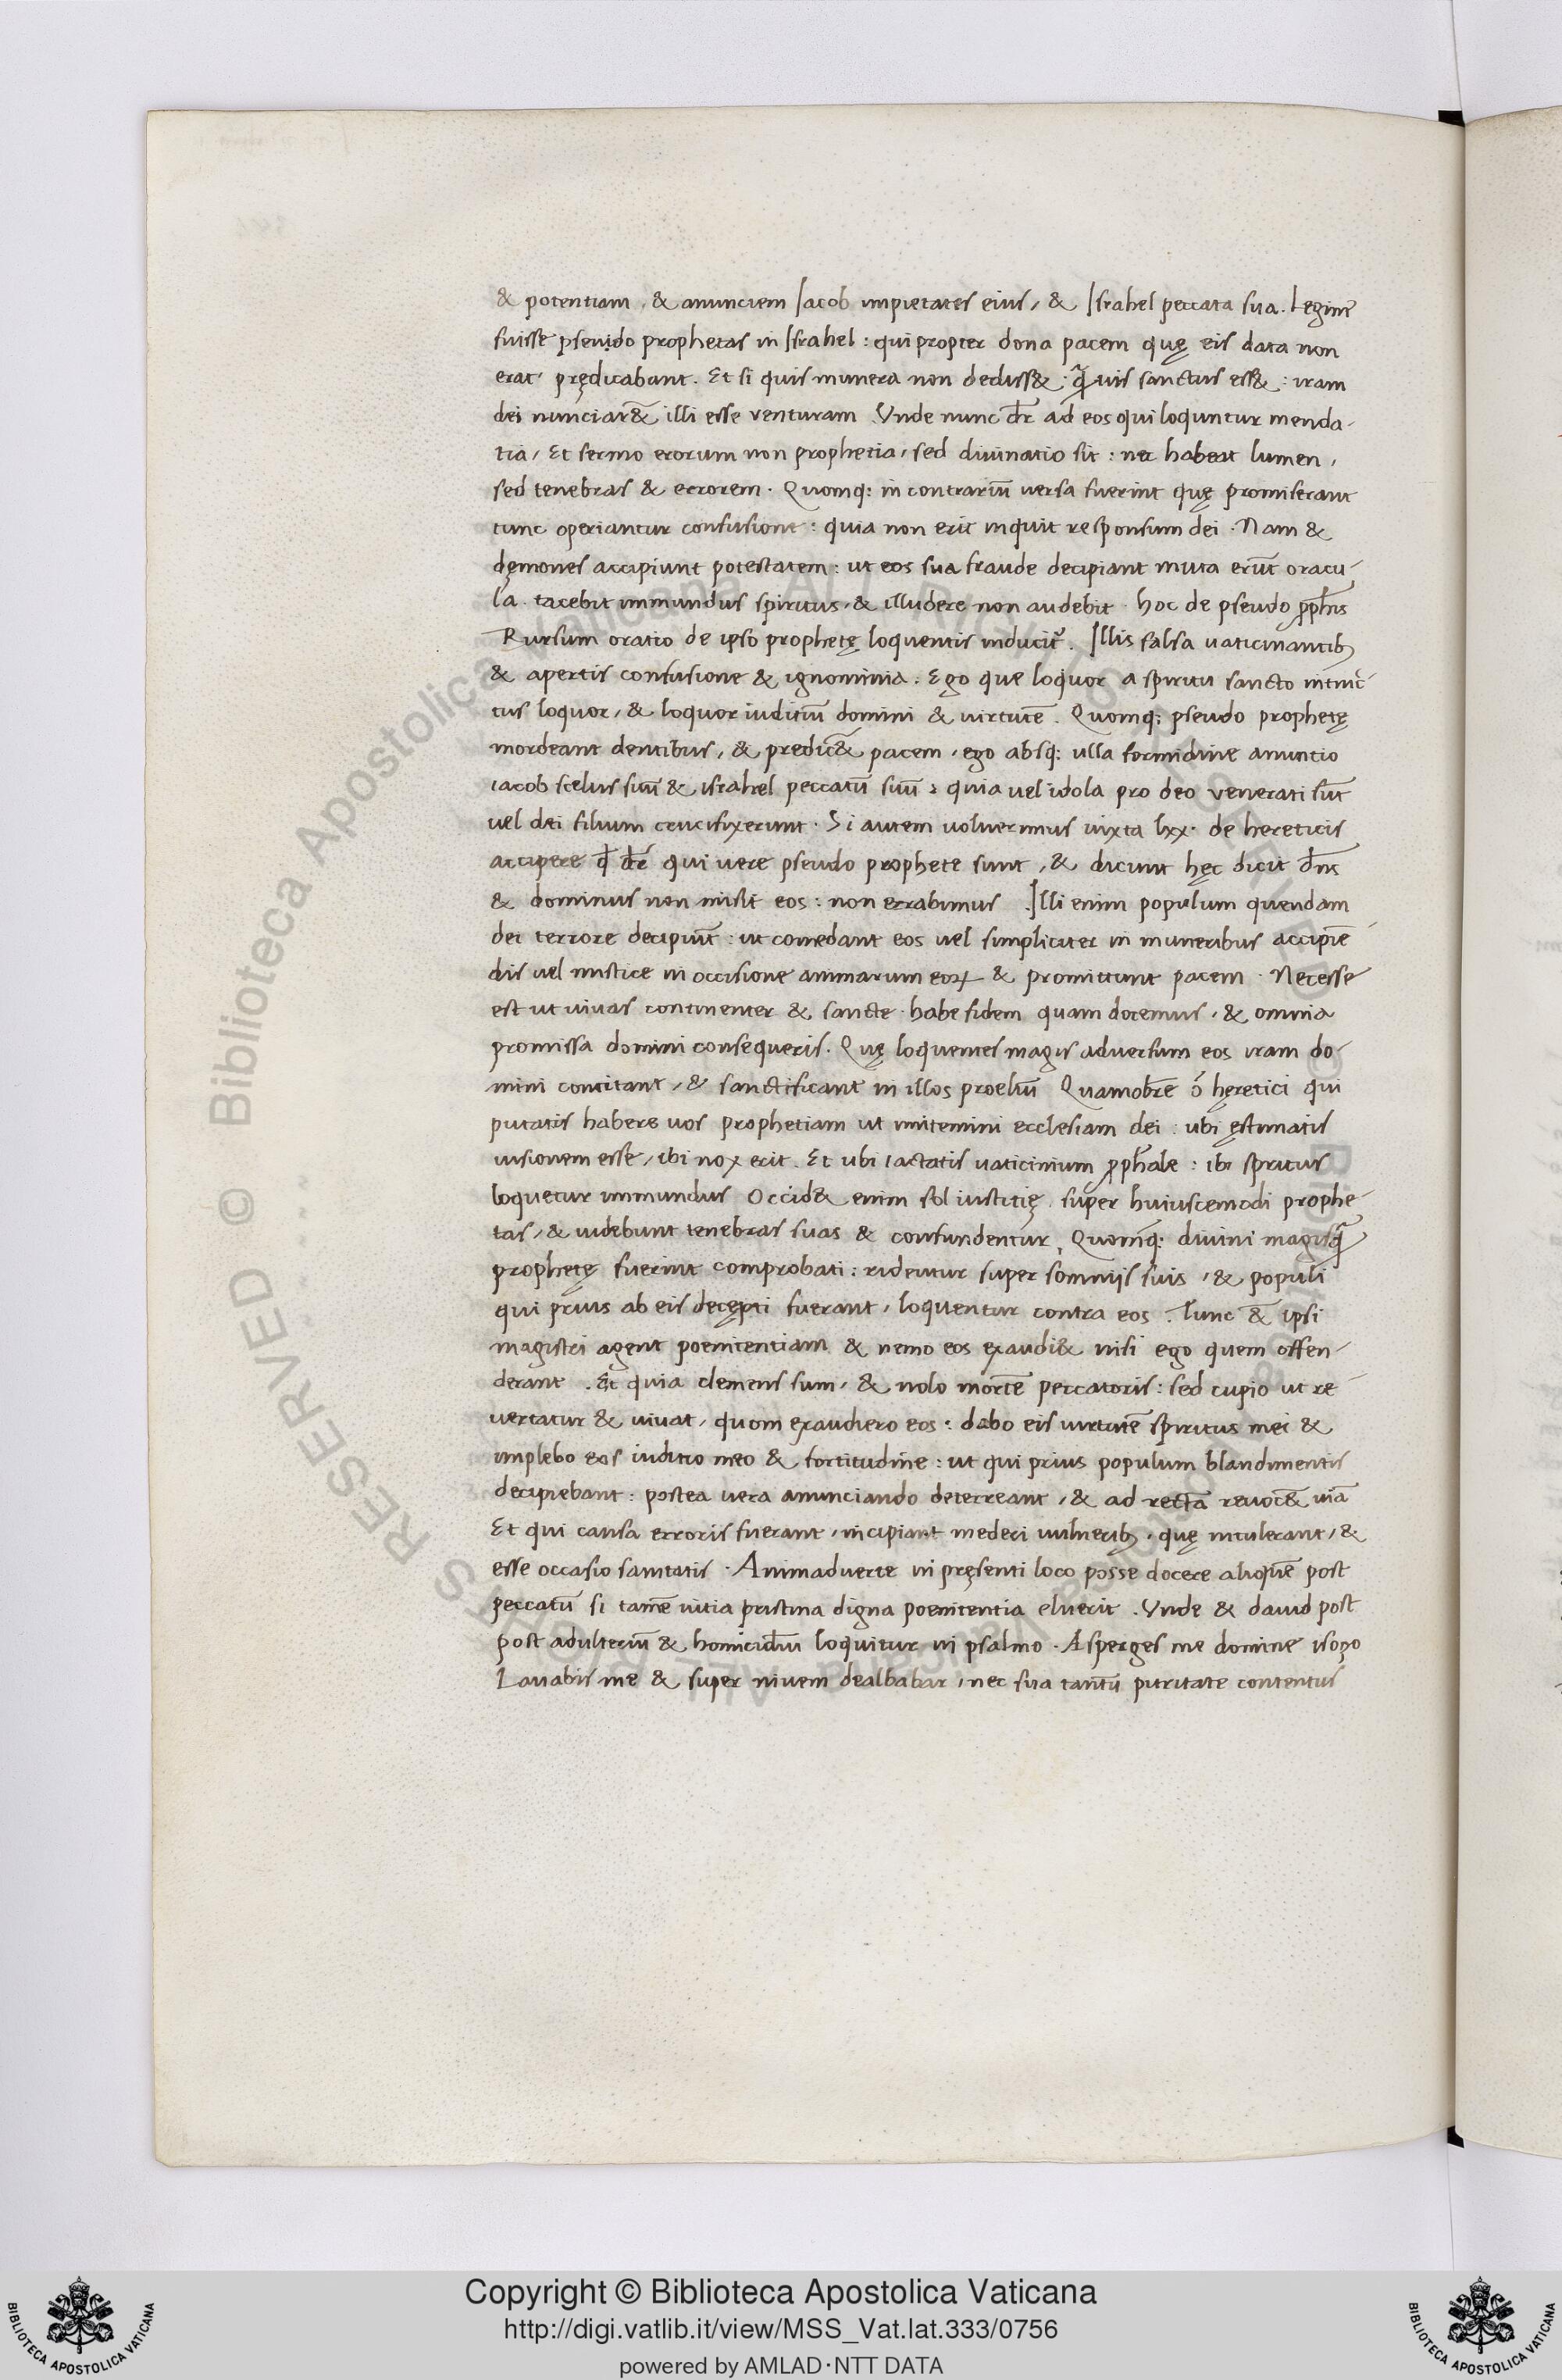 & potentiam, & anunciem Iacob impietates eius, & Israhel peccata sua. Legim̄
fuisse pseudo prophetas in Israhel: qui propter dona pacem quę eis data non
erat prędicabant. Et si quis munera non dediss&: q̄uis sanctus ess&: iram
dei nunciar&̄ illi esse venturam. Vnde nunc dr̄ ad eos qui loquntur menda-
tia, Et sermo erorum non prophetia, sed diuinatio sit: nec habeat lumen,
sed tenebras & errorem. Quomq: in contrariū uersa fuerint quę promiserant
tunc operiantur confusione: quia non erit inquit responsum dei. Nam &
dęmones accipiunt potestatem: ut eos sua fraude decipiant muta erūt oracu-
la. tacebit inmundus spiritus, & illudere non audebit. hoc de pseudo ꝓph̄is
Rursum oratio de ipso prophetę loquentis inducit᷑. Illis falsa uaticinantib;
& apertis confusione & ignominia. Ego que loquor a spiritu sancto intruc-
tus loquor, & loquor iuditiū domini & uirtutē. Quomq: pseudo prophetę
mordeant dentibus, & predic&̄ pacem, ego absq: ulla formidine anuntio
iacob scelus suū & israhel peccatū suū: quia uel idola pro deo venerati sūt
uel dei filium crucifixerunt. Si autem uoluerimus iuxta lxx. de hereticis
accipere q̄ dr̄ qui uere pseudo prophete sunt, & dicunt hęc dicit dn̄s
& dominus non misit eos: non errabimus. Illi enim populum quendam
dei terrore decipiūt: ut comedant eos uel simpliciter in muneribus accipiē
dis uel mistice in occisione animarum eoꝝ & promittunt pacem. Necesse
est ut uiuas continenter & sancte. habe fidem quam docemus, & omnia
promissa domini consequeris. Quę loquentes magis aduersum eos iram do-
mini concitant, & sanctificant in illos proeliū Quamobrē ó hęretici qui
putatis habere uos prophetiam ut imitemini ecclesiam dei: ubi ęstimatis
uisionem esse, ibi nox erit. Et ubi iactatis uaticinium ꝓph̄ale: ibi spritus
loquetur immundus Occid& enim sol iustitię super huiuscemodi prophe-
tas, & uidebunt tenebras suas & confundentur, Quomq: diuini magisq̄
prophetę fuerint comprobati: ridentur super somniis suis, & populi
qui prius ab eis decępti fuerant, loquentur contra eos. Tunc & ipsi
magistri agent poenitentiam & nemo eos exaudi& nisi ego quem offen-
derant. Et quia clemens sum, & nolo mortē peccatoris: sed cupio ut re-
uertatur & uiuat, quom exaudiero eos: dabo eis uirtutē spiritus mei &
implebo eos iuditio meo & fortitudine: ut qui prius populum blandimentis
decipiebant: postea uera anunciando deterreant, & ad rectā reuoc&̄ uiā
Et qui causa erroris fuerant, incipiant mederi uulnerib;, quę intulerant, &
esse occasio sanitatis. Animaduerte in pręsenti loco posse docere alioquē post
peccatū si tamē uitia pristina digna poenitentia eluerit. Vnde & dauid post
post adulteriū & homicidiū loquitur in psalmo. Asperges me domine isopo
Lauabis me & super niuem dealbabar, nec sua tantū puritate contentus
© Biblioteca Apostolica Vaticana ALL RIGHTS RESERVED
Copyright © Biblioteca Apostolica Vaticana
http://digi.vatlib.it/view/MSS_Vat.lat.333/0756
powered by AMLAD·NTT DATA
BIBLIOTECA APOSTOLICA VATICANA
BIBLIOTECA APOSTOLICA VATICANA